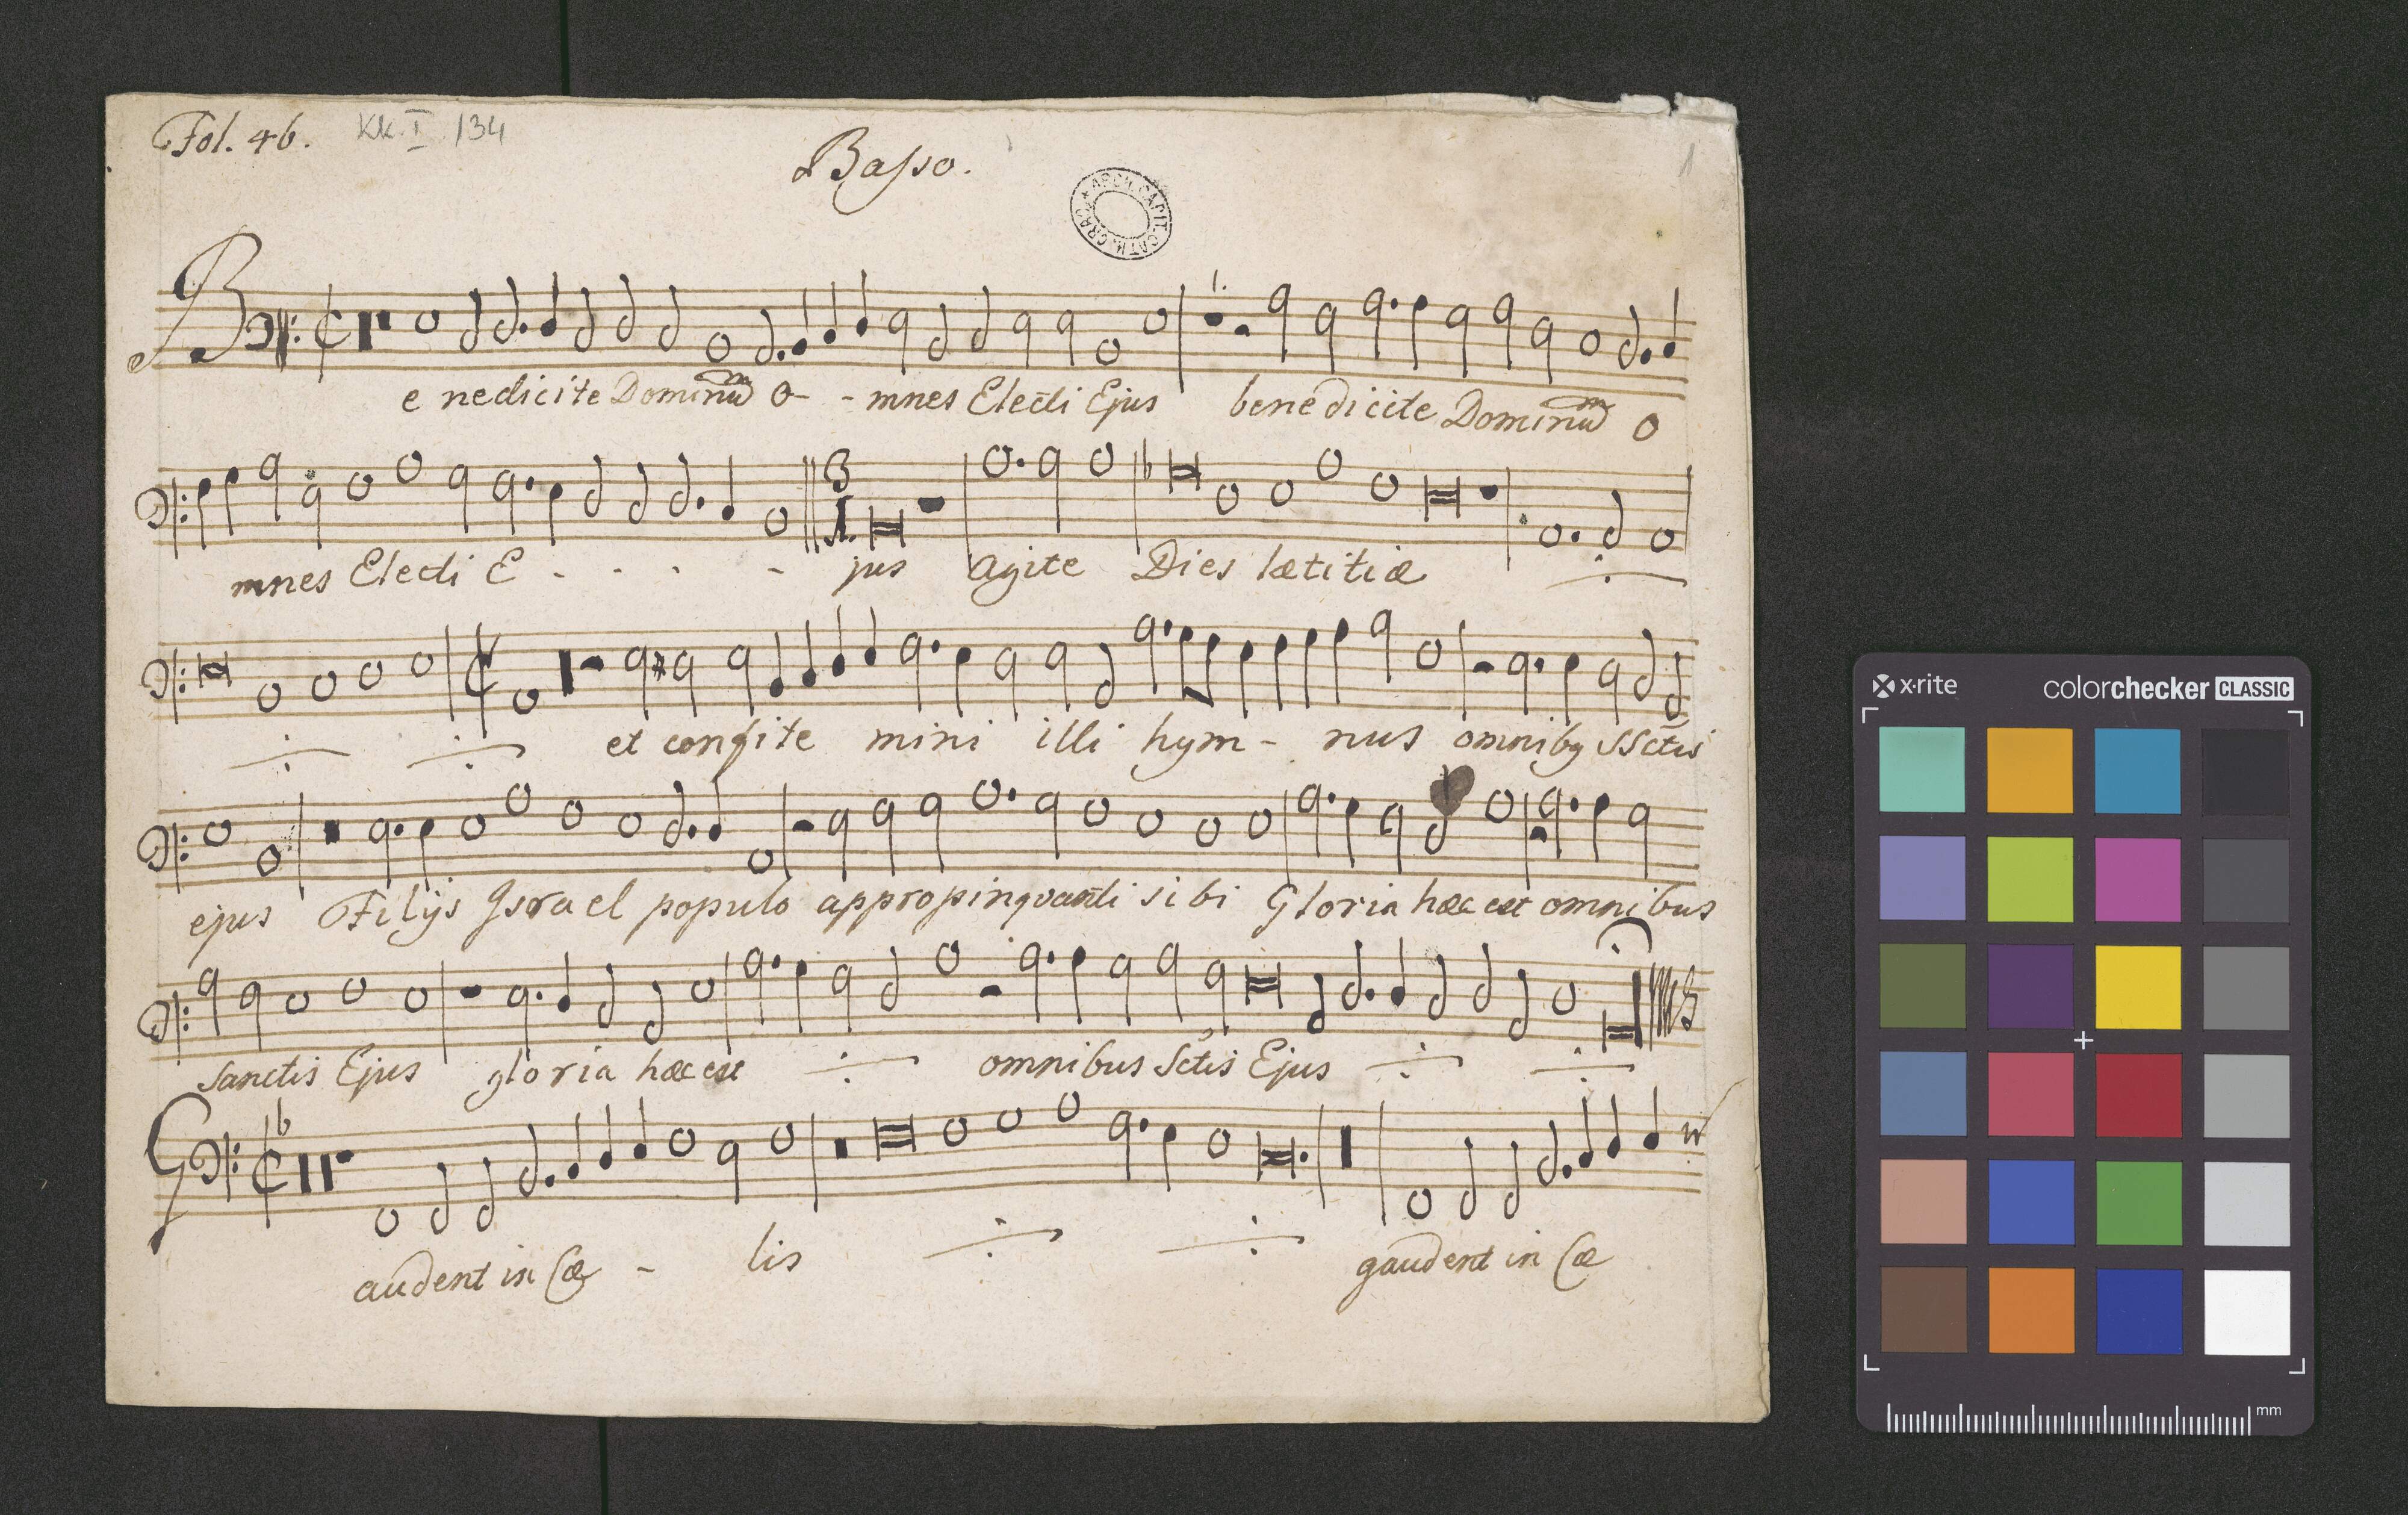 Fol. 46. Kk. I. 134
1
Basso.
ARCH. CAPIT. CATH. CRAC.
Benedicite Dominum O - - mnes Electi Ejus benedicite Dominum O
mnes Electi E - - - - jus Agite Dies lætitiæ
3
1.
et confite mini illi hym - nus omnibq SSctis
ejus Filijs Israel populo appropinqvanti sibi Gloria hæc est omnibus
sanctis Ejus gloria hæc est omnibus Sctis Ejus
Gaudent in Cœ - lis gaudent in Cœ
x-rite colorchecker CLASSIC
mm